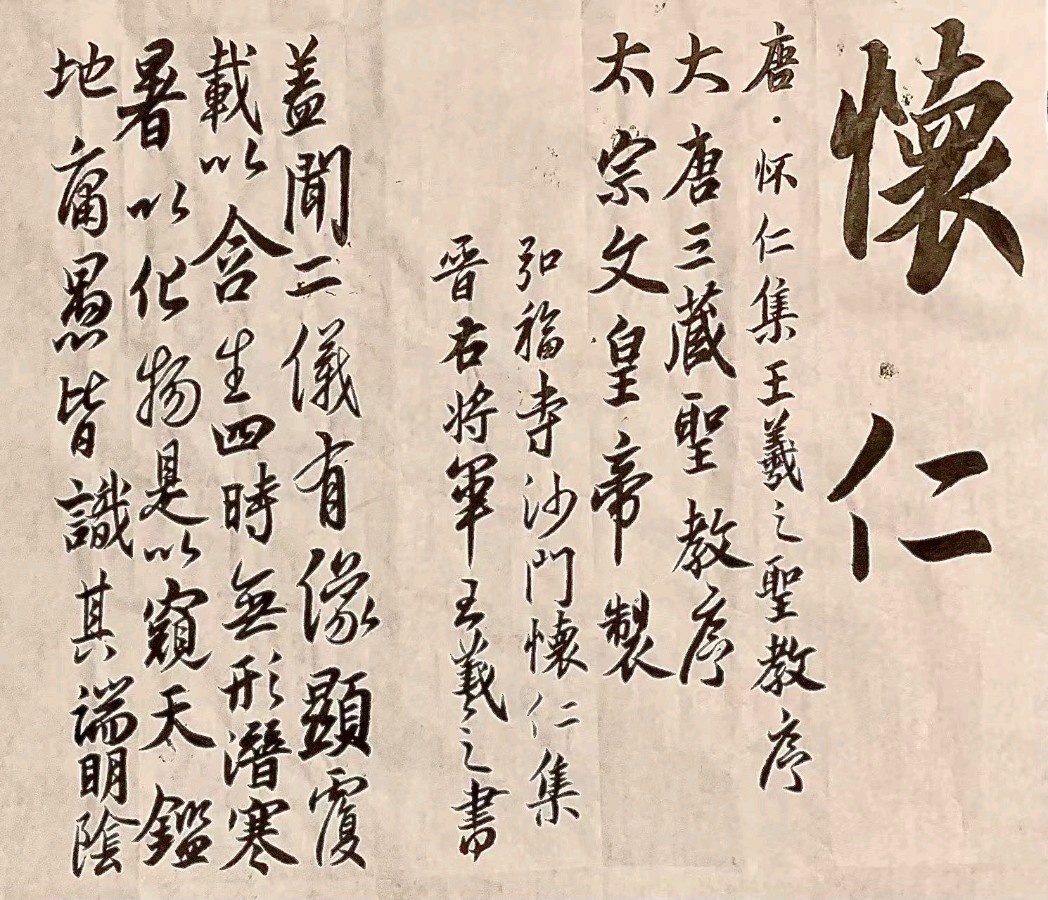 懷仁
唐·怀仁集王羲之聖教序
大唐三藏聖教序
太宗文皇帝製
弘福寺沙門懷仁集
晋右将軍王羲之書
蓋聞二儀有像顯覆
載以含生四時無形潛寒
暑以化物是以窺天鑑
地庸愚皆識其端明陰